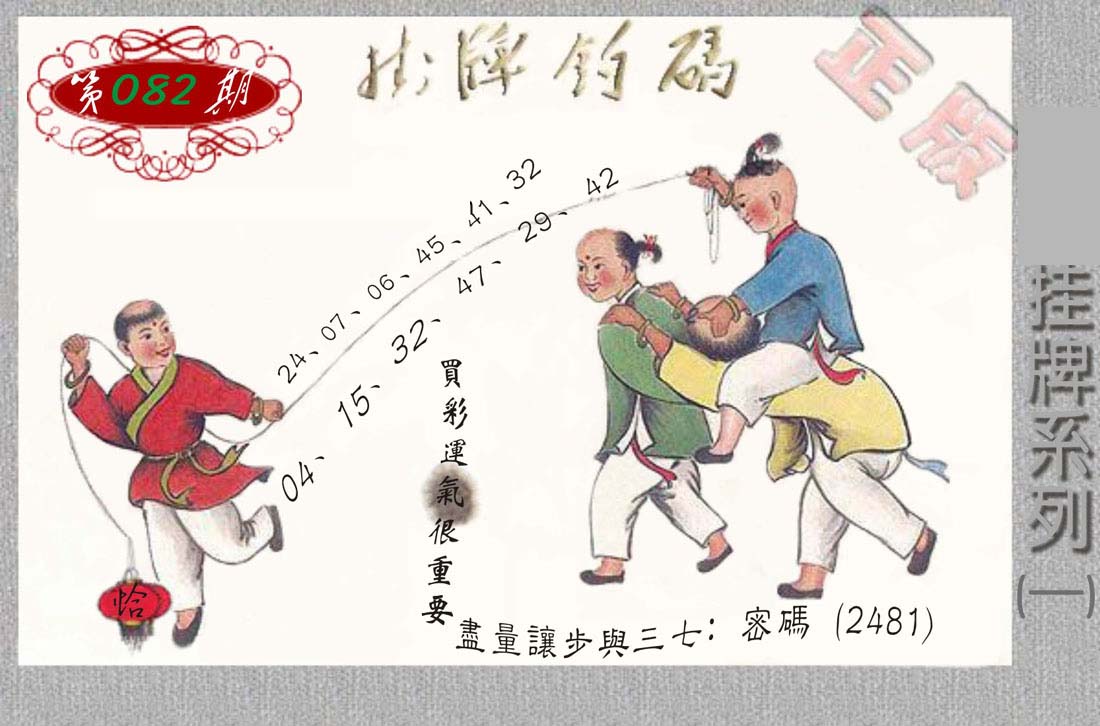 第082期
掛牌釣碼
正版
24、07、06、45、41、32
04、15、32、47、29、42
買彩運氣很重要
盡量讓步與三七：密碼（2481）
恰
挂牌系列(一)